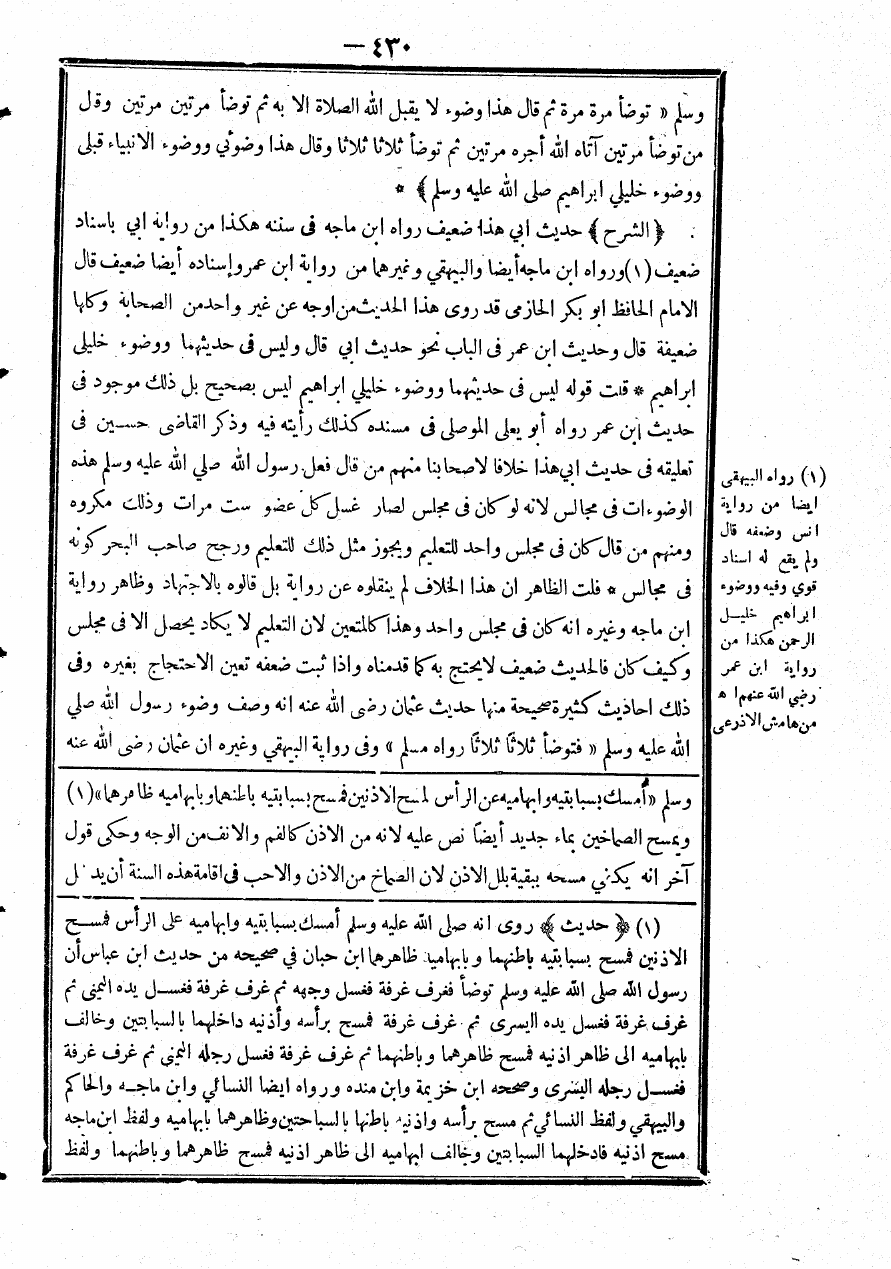 — ٤٣٠
وسلم « توضأ مرة مرة ثم قال هذا وضوء لا يقبل الله الصلاة الا به ثم توضأ مرتين مرتين وقل
من توضأ مرتين آتاه الله أجره مرتين ثم توضأ ثلاثا ثلاثا وقال هذا وضوئي ووضوء الانبياء قبلى
ووضوء خليلي ابراهيم صلى الله عليه وسلم ﴾ *
﴿ الشرح ﴾ حديث أبي هذا ضعيف رواه ابن ماجه فى سننه هكذا من رواية ابي باسناد
ضعيف (١) ورواه ابن ماجه أيضا والبيهقي وغيرهما من رواية ابن عمر وإسناده أيضا ضعيف قال
الامام الحافظ ابو بكر الحازمى قد روى هذا الحديث من اوجه عن غير واحد من الصحابة وكلها
ضعيفة قال وحديث ابن عمر فى الباب نحو حديث ابي قال وليس فى حديثهما ووضوء خليلى
ابراهيم * قلت قوله ليس فى حديثهما ووضوء خليلي ابراهيم ليس بصحيح بل ذلك موجود فى
حديث ابن عمر رواه أبو يعلى الموصلى فى مسنده كذلك رأيته فيه وذكر القاضى حسين فى
تعليقه فى حديث ابي هذا خلافا لاصحابنا منهم من قال فعل رسول الله صلي الله عليه وسلم هذه
الوضوءات فى مجالس لانه لو كان فى مجلس لصار غسل كل عضو ست مرات وذلك مكروه
ومنهم من قال كان فى مجلس واحد للتعليم ويجوز مثل ذلك للتعليم ورجح صاحب البحر كونه
فى مجالس * قلت الظاهر ان هذا الخلاف لم ينقلوه عن رواية بل قالوه بالاجتهاد وظاهر رواية
ابن ماجه وغيره انه كان فى مجلس واحد وهذا كالمتعين لان التعليم لا يكاد يحصل الا فى مجلس
وكيف كان فالحديث ضعيف لايحتج به كما قدمناه واذا ثبت ضعفه تعين الاحتجاج بغيره وفى
ذلك احاديث كثيرة صحيحة منها حديث عثمان رضى الله عنه انه وصف وضوء رسول الله صلي
الله عليه وسلم « فتوضأ ثلاثاً ثلاثاً رواه مسلم » وفى رواية البيهقي وغيره ان عثمان رضى الله عنه
(١) رواه البيهقى
ايضا من رواية
انس وضعفه قال
ولم يقع له اسناد
قوي وفيه ووضوء
ابراهيم خليل
الرحمن هكذا من
رواية ابن عمر
رضي الله عنهم ا ه
من هامش الاذرعى
وسلم « أمسك بسبابتيه وابهاميه عن الرأس لمسح الاذنين فمسح بسبابتيه باطنهما وبابهاميه ظاهرهما » (١)
ويمسح الصماخين بماء جديد أيضاً نص عليه لانه من الاذن كالفم والانف من الوجه وحكى قول
آخر انه يكفي مسحه ببقية بلل الاذن لان الصماخ من الاذن والاحب فى اقامة هذه السنة أن
(١) ﴿ حديث ﴾ روى انه صلى الله عليه وسلم أمسك بسبابتيه وابهاميه على الرأس فمسح
الاذنين فمسح بسبابتيه باطنهما وبابهاميه ظاهرهما ابن حبان في صحيحه من حديث ابن عباس أن
رسول الله صلى الله عليه وسلم توضأ فغرف غرفة فغسل وجهه ثم غرف غرفة فغسل يده اليمنى ثم
غرف غرفة فغسل يده اليسرى ثم غرف غرفة فمسح برأسه وأذنيه داخلهما بالسبابتين وخالف
بابهاميه الى ظاهر اذنيه فمسح ظاهرهما وباطنهما ثم غرف غرفة فغسل رجله اليمنى ثم غرف غرفة
فغسل رجله اليسرى وصححه ابن خزيمة وابن منده ورواه ايضا النسائي وابن ماجه والحاكم
والبيهقي ولفظ النسائي ثم مسح برأسه واذنيه باطنها بالسباحتين وظاهرهما بابهاميه ولفظ ابن ماجه
مسح اذنيه فادخلهما السبابتين وخالف ابهاميه الى ظاهر اذنيه فمسح ظاهرهما وباطنهما ولفظ